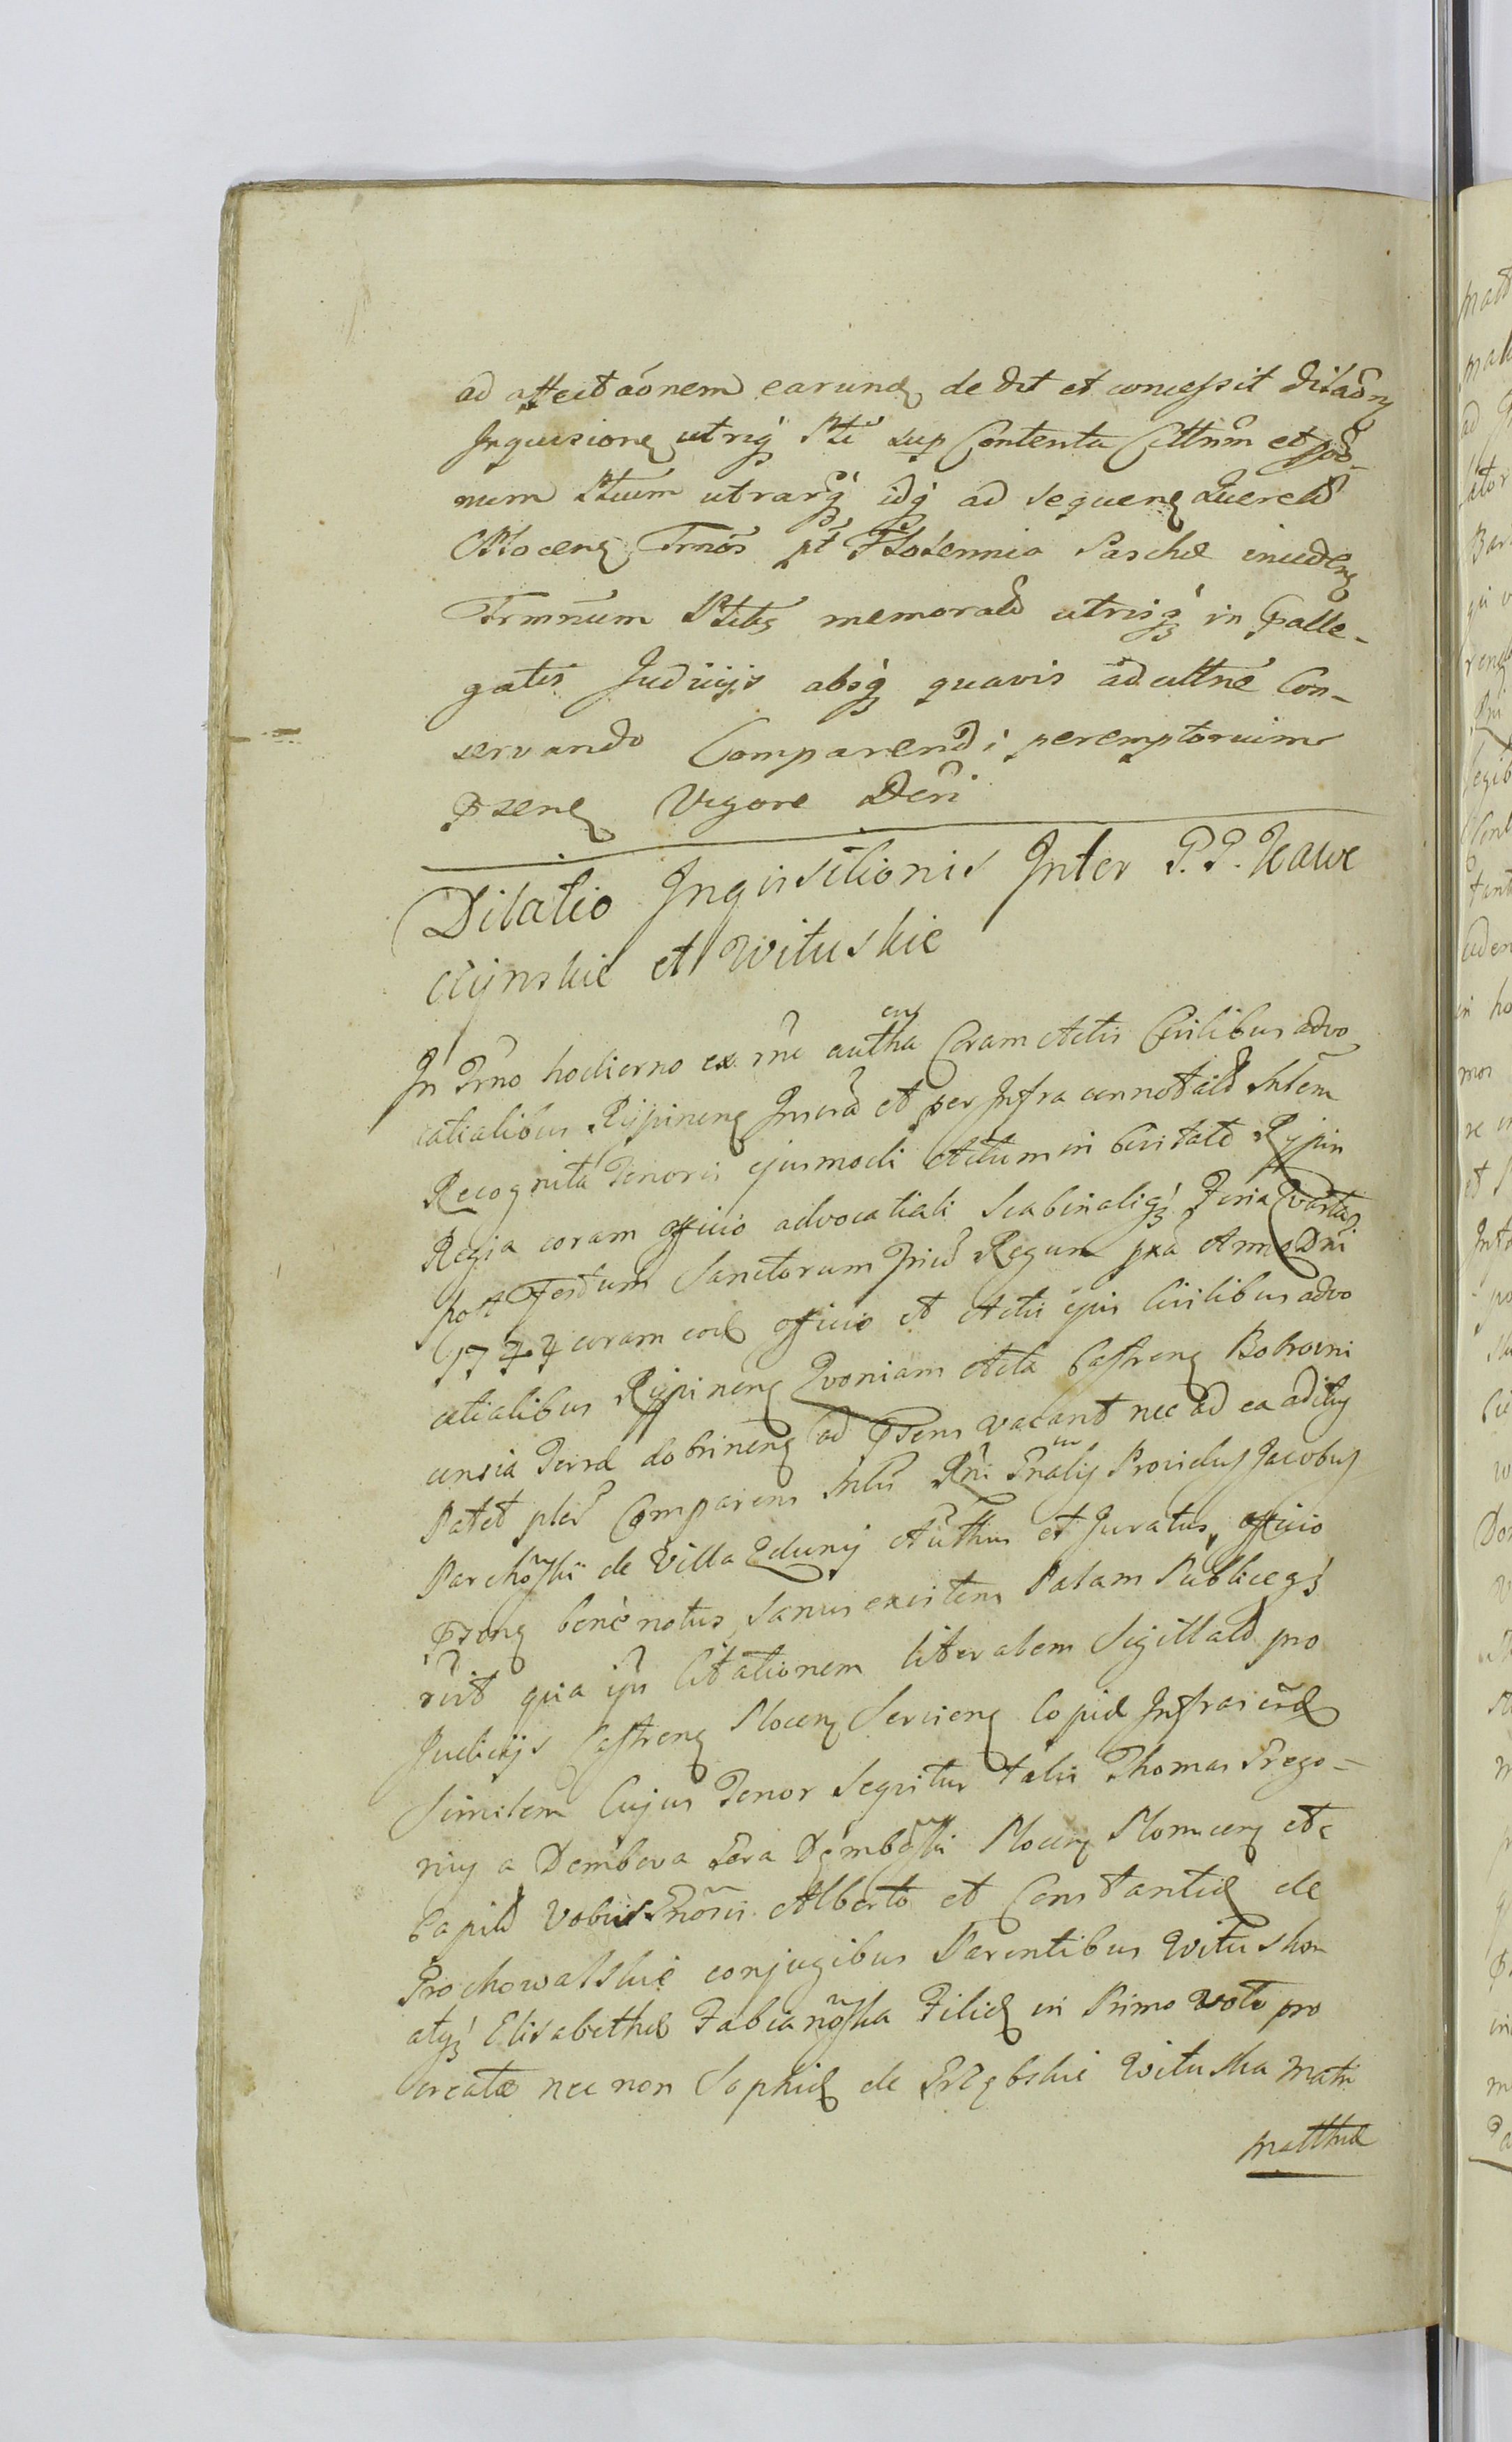 ad affectaõnem earundꝫ dedit et concessit dilaõnꝫ
Inquisionẽ utriqꝫ Pti sup Contenta Cittnm et ꝓpo-
num Ptium utrarqꝫ idqꝫ ad sequenꝫ Querel
Plocenꝫ Trnos pt Fsolennia Paschæ incidenꝫ
Trmnum Ptibꝫ memorat utrisqꝫ in ꝑalle-
gatis Judicijs absqꝫ quavis adcittne Con-
servando Comparendi peremptorium
Pzenꝫ Vigore Dcri
Dilatio Inqvisitionis Inter P.P. Kawe
czijnskie et Wituskie
In Trno hodierno ex rne autha Coram Actis Civilibus advo
catialibus Rypinenꝫ Insera et per Infra annotat Mlem
Recognita Tenoris ejusmodi Actum in Civitate Rypin
Regia coram officio advocatiali Scabinaliqꝫ Feria Qvarta
post Festum Sanctorum Triu Regum pxa Anno Dni
1744 coram eod officio et Actis ejus Civilibus advo
catialibus Rypinenꝫ Qvoniam Acta Castrenꝫ Bobrowni
censia Terræ dobrinenꝫ ad Pzens vacant nec ad ea aditus
Patet pler Comparens Mlis Rni Gnalis Providus Jacobus
Parchoski de Villa Zduny Authus et Juratus, officio
Pzenꝫ bene notus, Sanus existens Palam Publiceqꝫ
rcvit qvia ipse Citationem literalem Sigillat pro
Judicijs Castrenꝫ Plocenꝫ Servienꝫ Copiæ Infrascrꝫ
Similem Cujus Tenor Seqvitur talis Thomas Grzego-
rius a Dembowa Gora Dembowski Plocenꝫ Plonscenꝫ etc
Capit Vobis Gnosis Alberto et Constantiæ de
Prochowalskie conjugibus Parentibus Witusko
atqꝫ Elisabethæ Fabianoska Filiæ in Primo Voto pro
creatæ nec non Sophiæ de Grzębskie Wituska Matri
Matthiæ